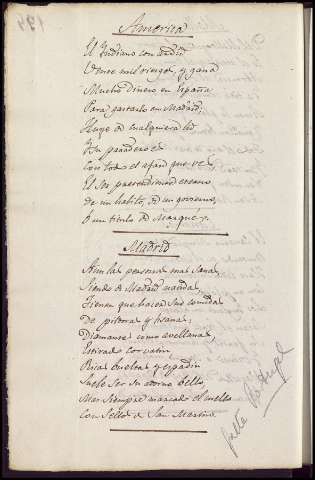 199
America
El Indiano con ardid
Vence mil riesgos, y gana
Mucho dinero en España
Para gastarlo en Madrid;
Huye de cualquiera lid
Con todo el afan que ve
El ser pretendiendo
de un habito, de un govierno,
O un titulo de Marques.
Madrid
Aun las personas mas sanas,
Siendo de Madrid nacidas,
Tienen que hacer sus comidas
De pildoras y tisanas;
Diamantes como avellanas,
Estirado corvatin
Ricas bueltas y espadin
Suele ser su adorno bello,
Mas siempre marcado el cuello
Con sellos de San Martin
falta Portugal